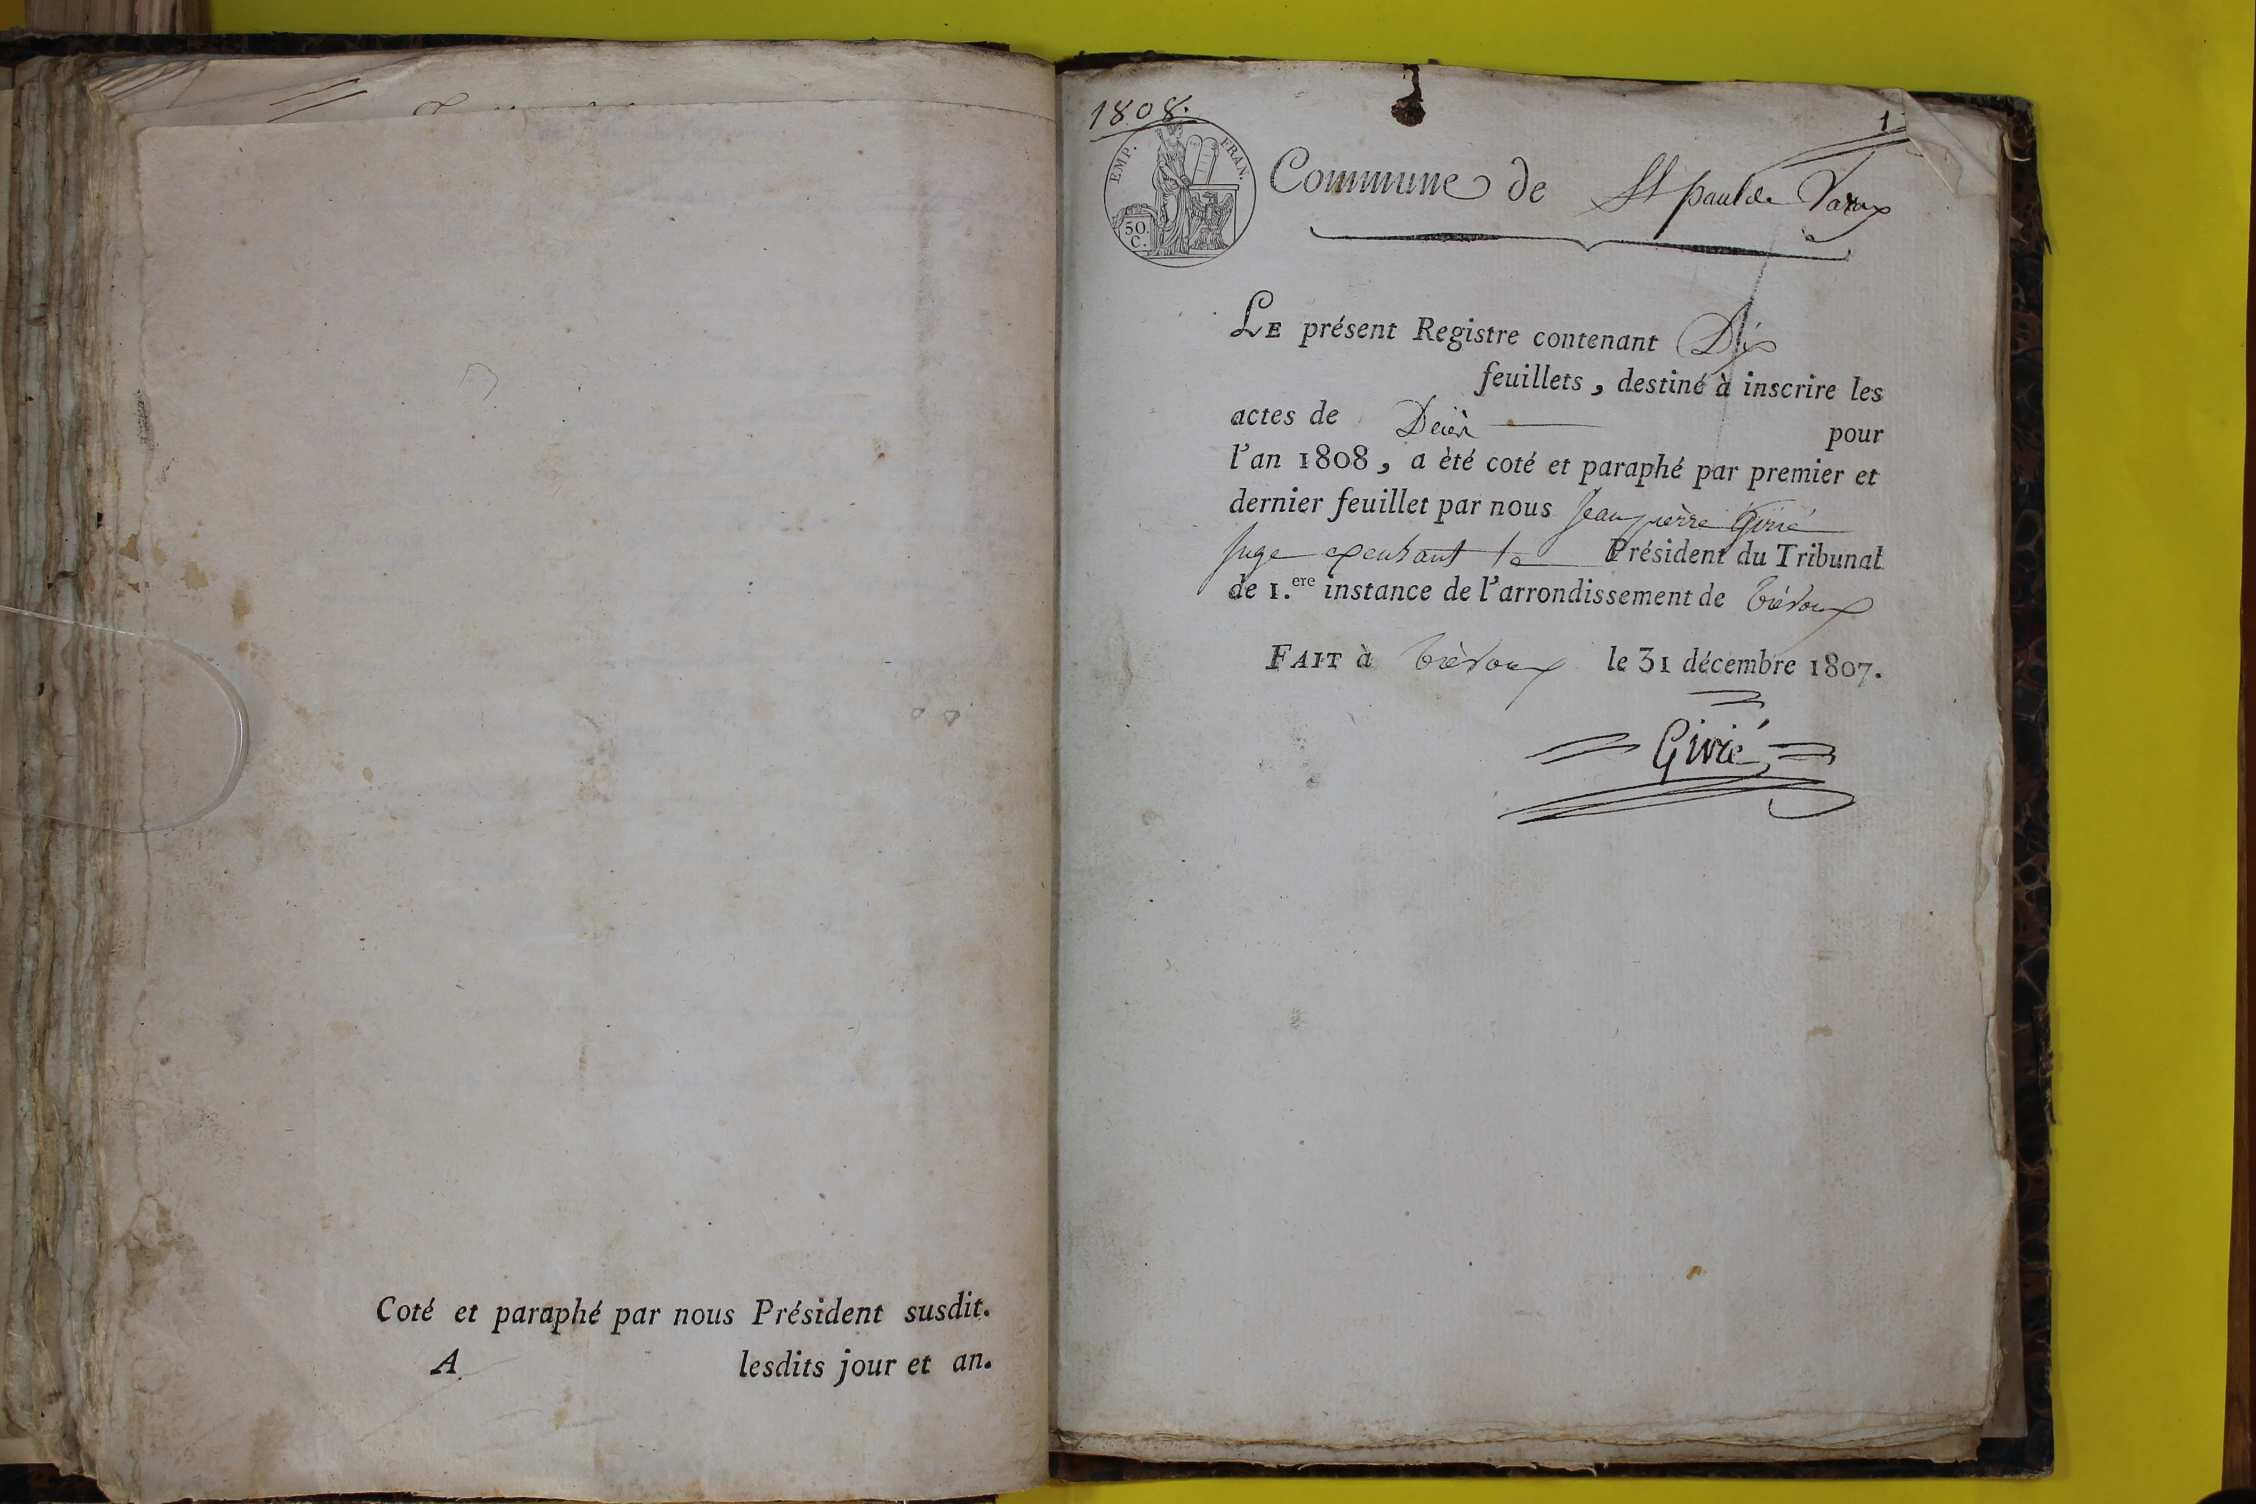 Coté et paraphé par nous Président susdit.
A lesdits jour et an.
1808.
1
EMP. FRAN.
50.
C.
Commune de St paul de Varax
LE présent Registre contenant Dix
feuillets, destiné à inscrire les
actes de Décès pour
l'an 1808, a èté coté et paraphé par premier et
dernier feuillet par nous Jean pierre Givié
Juge exerçant le Président du Tribunal
de 1.ere instance de l'arrondissement de trévoux
FAIT à trèvoux le 31 décembre 1807.
Givié